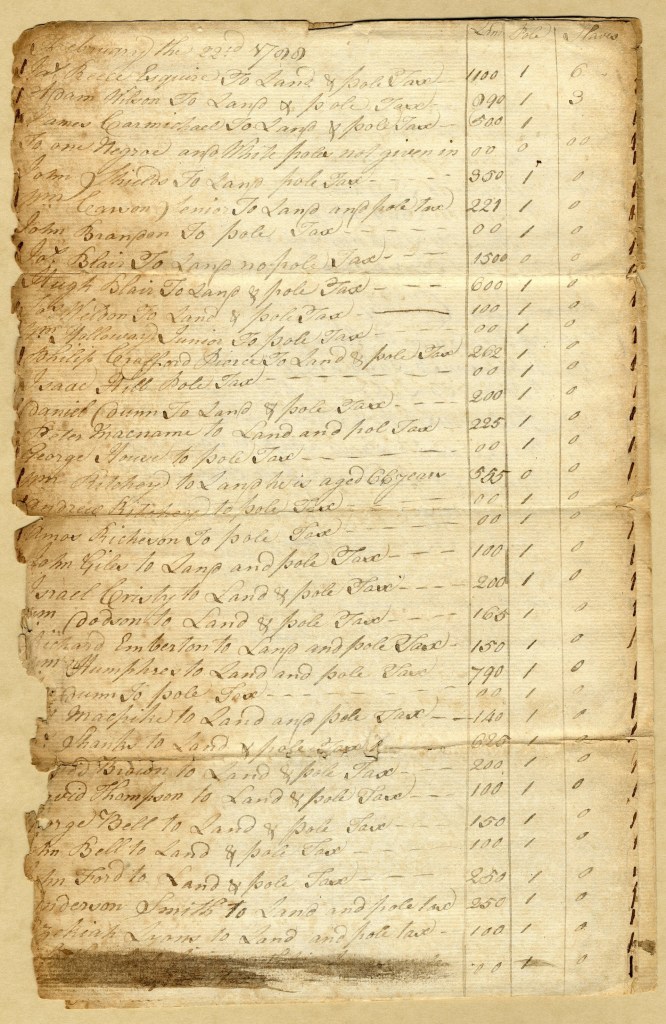 February the 22nd 1788 Lan Pole Slaves
Jos. Reece Esquire To Land & pole Tax 1100 1 6
Adam Wilson To Land & pole Tax 990 1 3
James Carmichael To Land & pole Tax 500 1
To one Negroe and White poles not given in 00 0 00
John Shields To Land pole Tax 350 1 0
Wm Carson To Land and pole tax 221 1 0
John Brandon To pole Tax 00 1 0
Jos. Blair To Land no pole Tax 1500 0 0
Hugh Blair To Land & pole Tax 600 1 0
To Land & pole Tax 100 1 0
Holloway Junior To pole Tax 00 1 0
Philip Crafford To Land & pole Tax 262 1 0
Isaac Hill Pole Tax 00 1 0
Daniel Dunn To Land & pole Tax 200 1 0
Peter Macname to Land and pol Tax 225 1 0
George to pole Tax 00 1 0
Wm Ritchey to Land he is aged 66 years 555 0 0
Andrew Ritchey to pole Tax 00 1 0
Amos Richeson To pole Tax 00 1 0
John Giles to Land and pole Tax 100 1 0
Israel Cresty to Land & pole Tax 200 1 0
Wm Dodson to Land & pole Tax 165 1 0
Richard Emberton to Land and pole Tax 150 1 0
Wm Humphres to Land and pole Tax 790 1 0
Dunn To pole Tax 00 1 0
Macpike to Land and pole Tax 140 1 0
Shanks to Land & pole Tax 625 1 0
Brown to Land & pole Tax 200 1 0
David Thompson to Land & pole Tax 100 1 0
George Bell to Land & pole Tax 150 1 0
John Bell to Land & pole Tax 100 1 0
John Ford to Land & pole Tax 250 1 0
Anderson Smith to Land and pole tax 250 1 0
Lyans to Land and pole tax 100 1 0
00 1 0